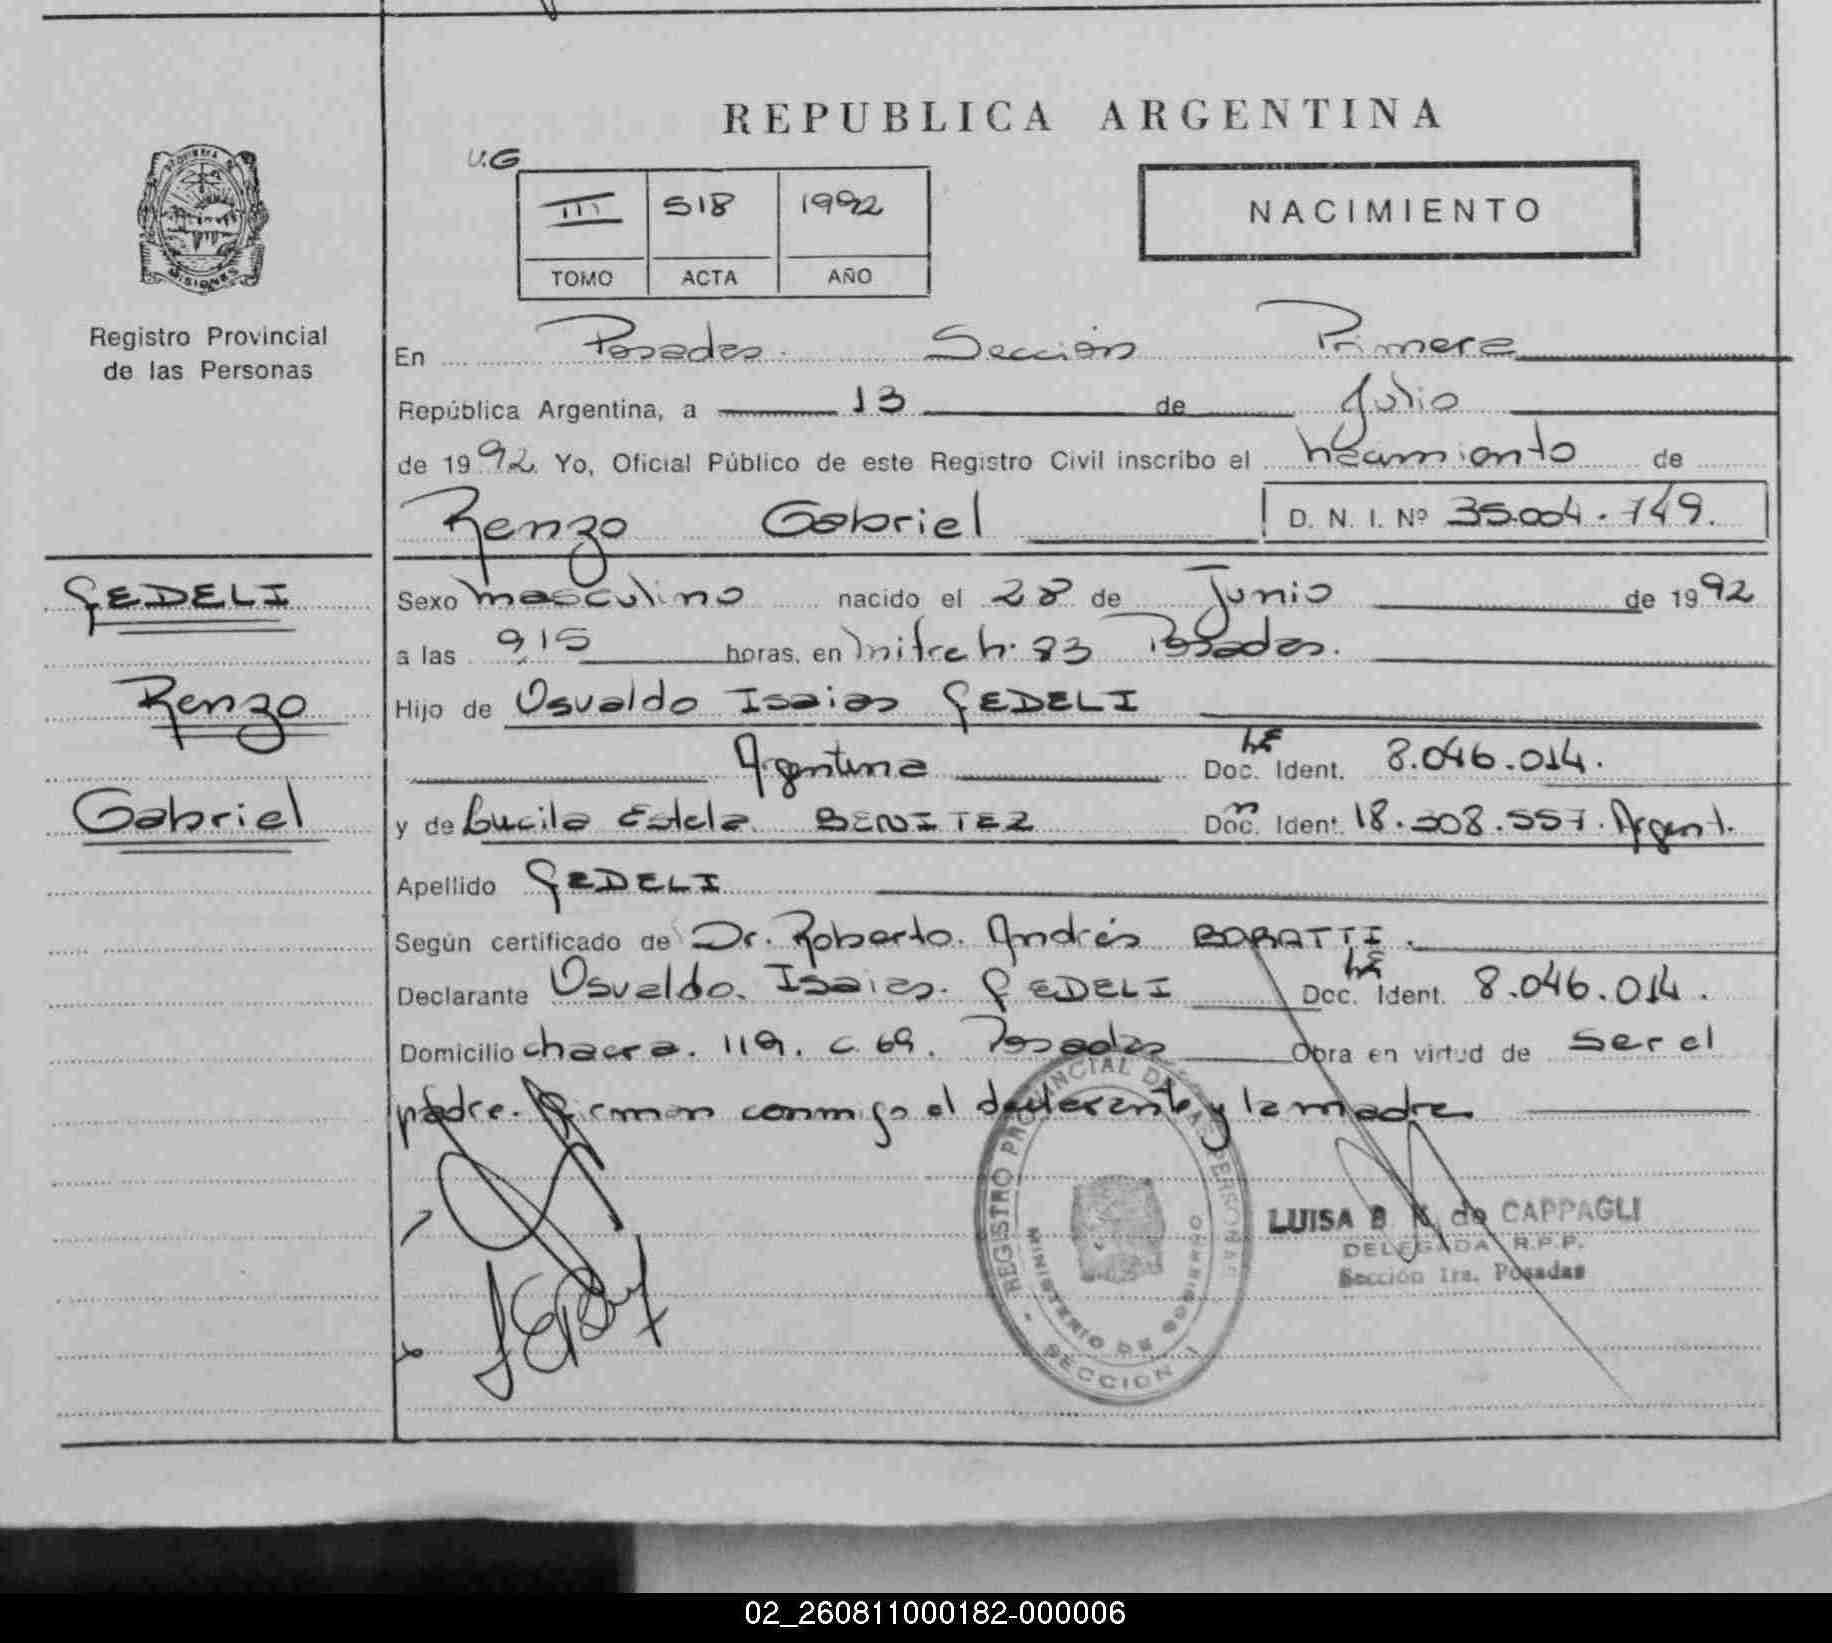 REPUBLICA ARGENTINA
U.G
III 518 1992
TOMO ACTA AÑO
NACIMIENTO
PROVINCIA DE MISIONES
Registro Provincial
de las Personas
En Posadas. Sección Primera
República Argentina, a 13 de Julio
de 1992. Yo, Oficial Público de este Registro Civil inscribo el nacimiento de
Renzo Gabriel D. N. I. Nº 35.004.749.
GEDELI
Renzo
Gabriel
Sexo masculino nacido el 28 de Junio de 1992
a las 9,15 horas, en Mitre h. 83 Posadas.
Hijo de Osvaldo Isaias GEDELI
Argentina Doc. Ident. LE 8.046.014.
y de Lucila Estela BENITEZ Doc. Ident. 18.308.557. Argent.
Apellido GEDELI
Según certificado de Dr. Roberto. Andrés BORATTI.
Declarante Osvaldo. Isaias. GEDELI Doc. Ident. LE 8.046.014.
Domicilio chacra. 119. c 69. Posadas Obra en virtud de ser el
padre. Firman conmigo el declarante y la madre
REGISTRO PROVINCIAL DE LAS PERSONAS
MINISTERIO DE GOBIERNO
SECCION 1
LUISA B de CAPPAGLI
DELEGADA R.P.P.
Sección 1ra. Posadas
02_260811000182-000006